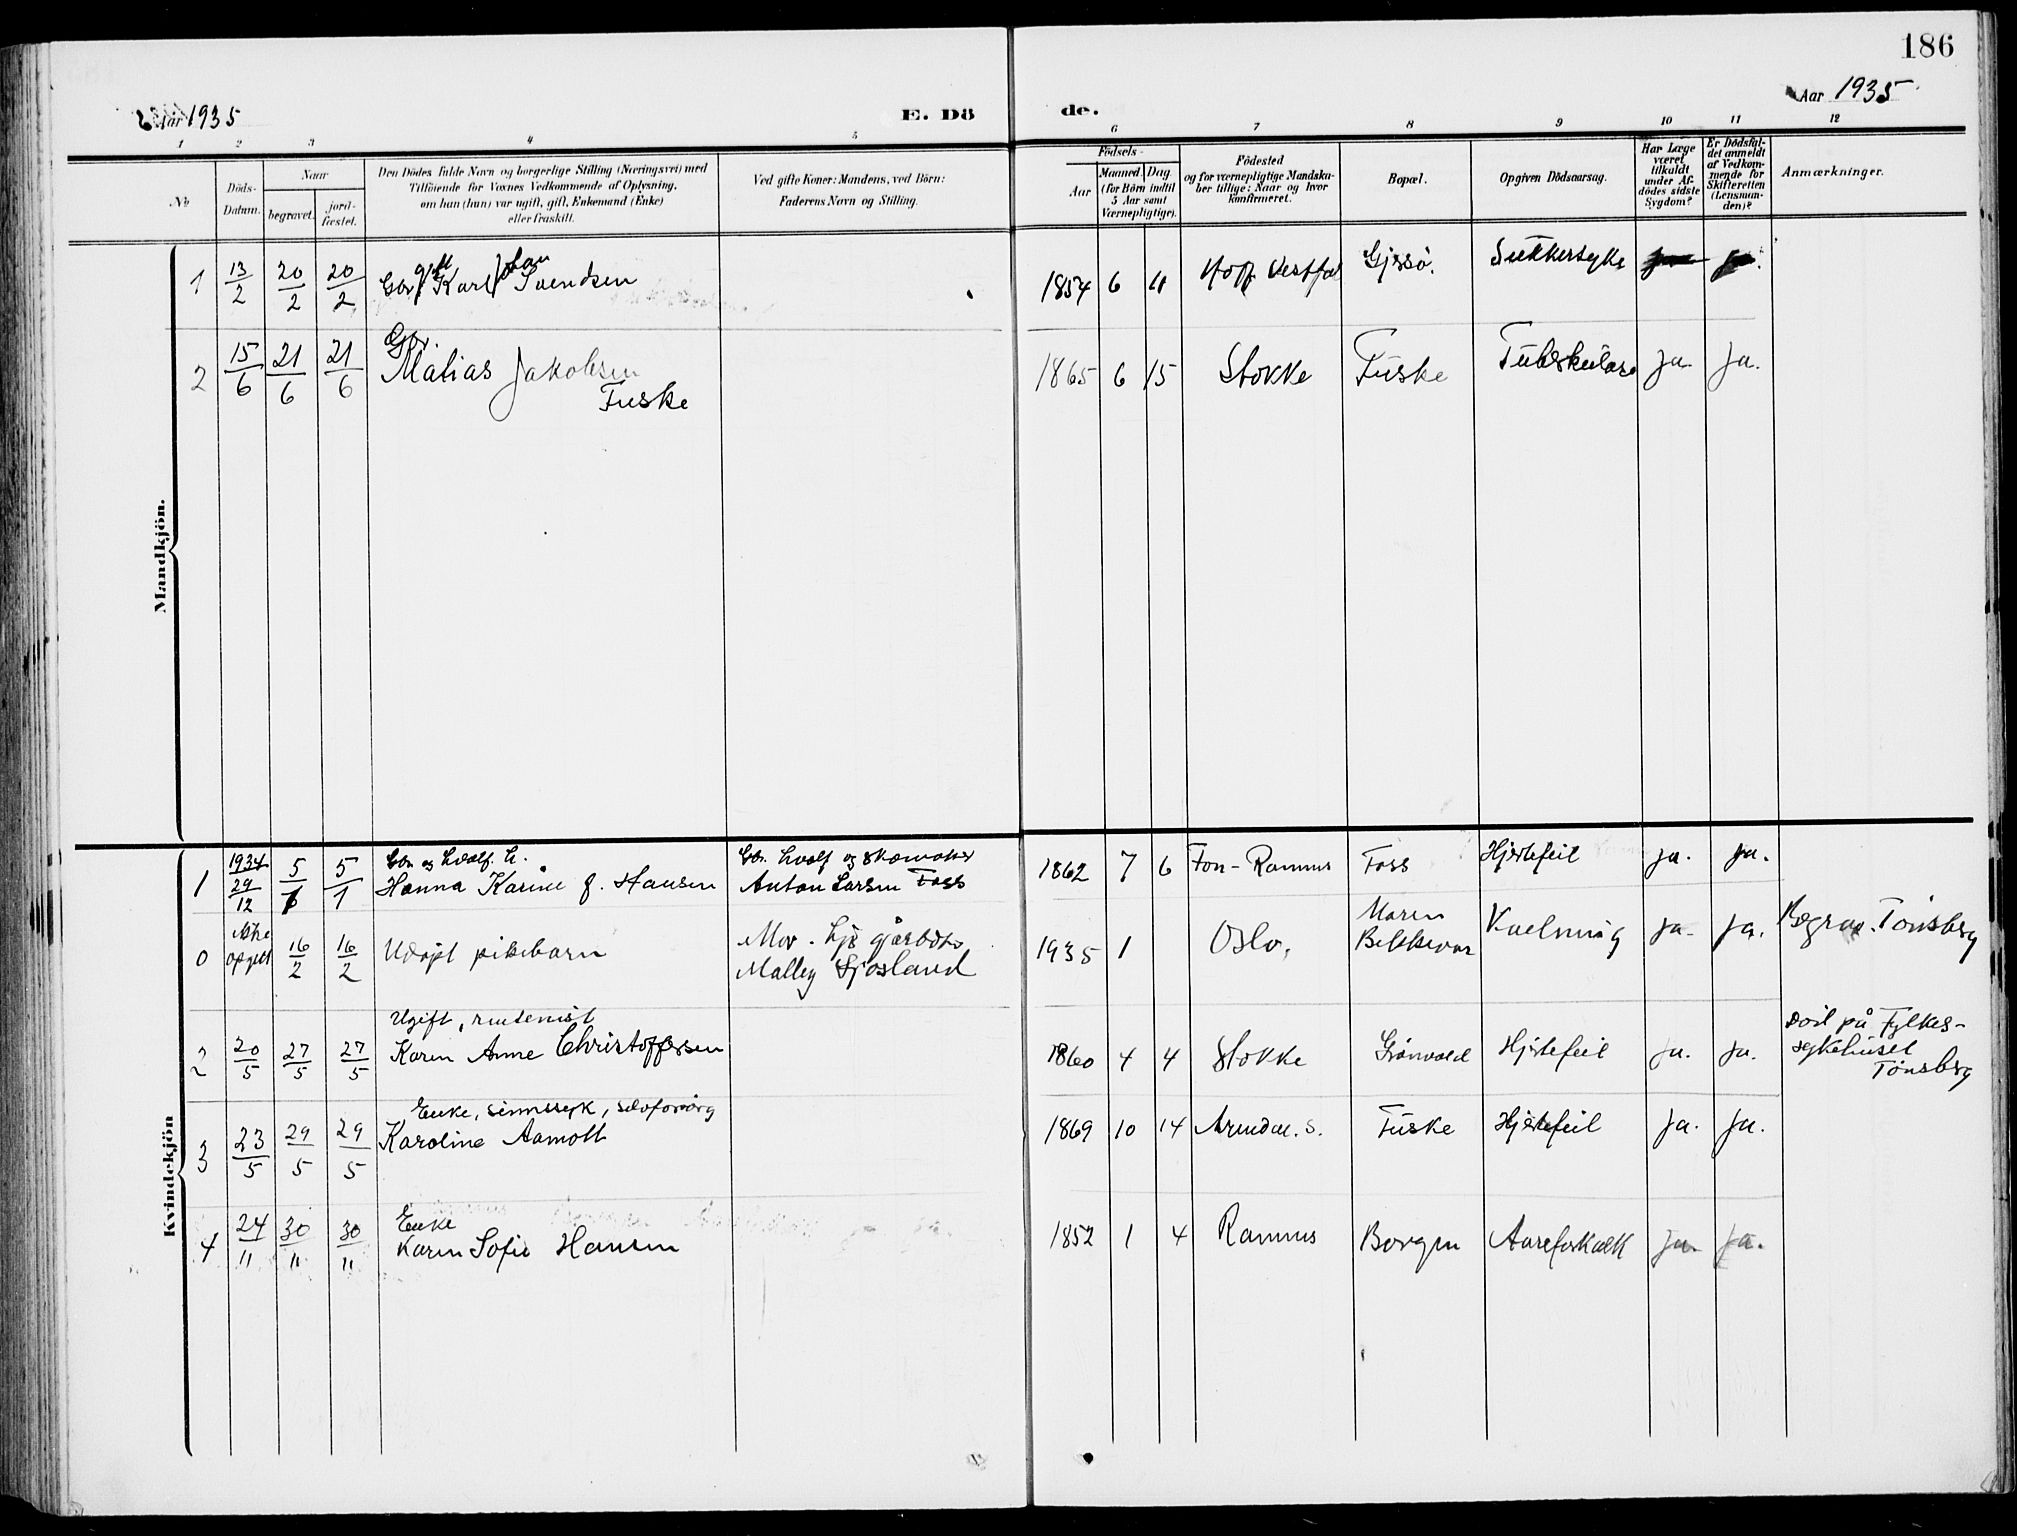 186
Aar 1935
E. Dö
de.
Aar 1935
1 2 3 4 5 6 7 8 9 10 11 12
№
Döds-
Datum.
Naar
begravet.
jord-
fæstet.
Den Dödes fulde Navn og borgerlige Stilling (Næringsvei) med
Tilföiende for Voxnes Vedkommende af Oplysning,
om han (hun) var ugift, gift, Enkemand (Enke)
eller fraskilt.
Ved gifte Koner: Mandens, ved Börn:
Faderens Navn og Stilling.
Födsels-
Aar
Maaned. Dag.
(for Börn indtil
5 Aar samt
Værnepligtige).
Födested
og for værnepligtige Mandska-
ber tillige: Naar og hvor
konfirmeret.
Bopæl.
Opgiven Dödsaarsag.
Har Læge
været
tilkaldt
under Af-
dödes sidste
Sygdom?
Er Dödsfal-
det anmeldt
af Vedkom-
mende for
Skifteretten
(Lensman-
den)?
Anmærkninger.
Mandkjön.
1 13/2 20/2 20/2 Gbr. gift Karl Johan Svendsen 1854 6 11 Hof Vestfol Gjessø. Sukkersyke
2 15/6 21/6 21/6 Gbr.
Matias Jakobsen
Fuske
1865 6 15 Stokke Fuske Tuberkulose Ja. Ja.
Kvindekjön
1 1934 29/12 5/1 5/1 Gbr. og hvalf. h.
Hanna Karine f. Hansen
Gbr. hvalf og skomaker
Anton Larsen Foss
1862 7 6 Fon-Ramnes Foss Hjertefeil Ja. Ja.
0 Ikke
opgitt 16/2 16/2 Udøpt pikebarn
Mor. hjs gjørbdts
Malley Sjøsland
1935 1 Oslo, Maren
Bekkevar Kvelning Ja. Ja. Begrav. Tönsberg
2 20/5 27/5 27/5 Ugift, rentenist
Karen Anne Christoffersen
1860 4 4 Stokke Grönvold Hjertefeil Ja. Ja. Død på Fylkes-
sykehuset
Tönsberg
3 23/5 29/5 29/5 Enke, sinnssyk, selvforsörg
Karoline Aamott
1869 10 14 Arendal. S. Fuske Hjertefeil Ja. Ja.
4 24/11 30/11 30/11 Enke
Karen Sofie Hansen
1852 1 4 Ramnes Borgen Aareforkalk Ja. Ja.